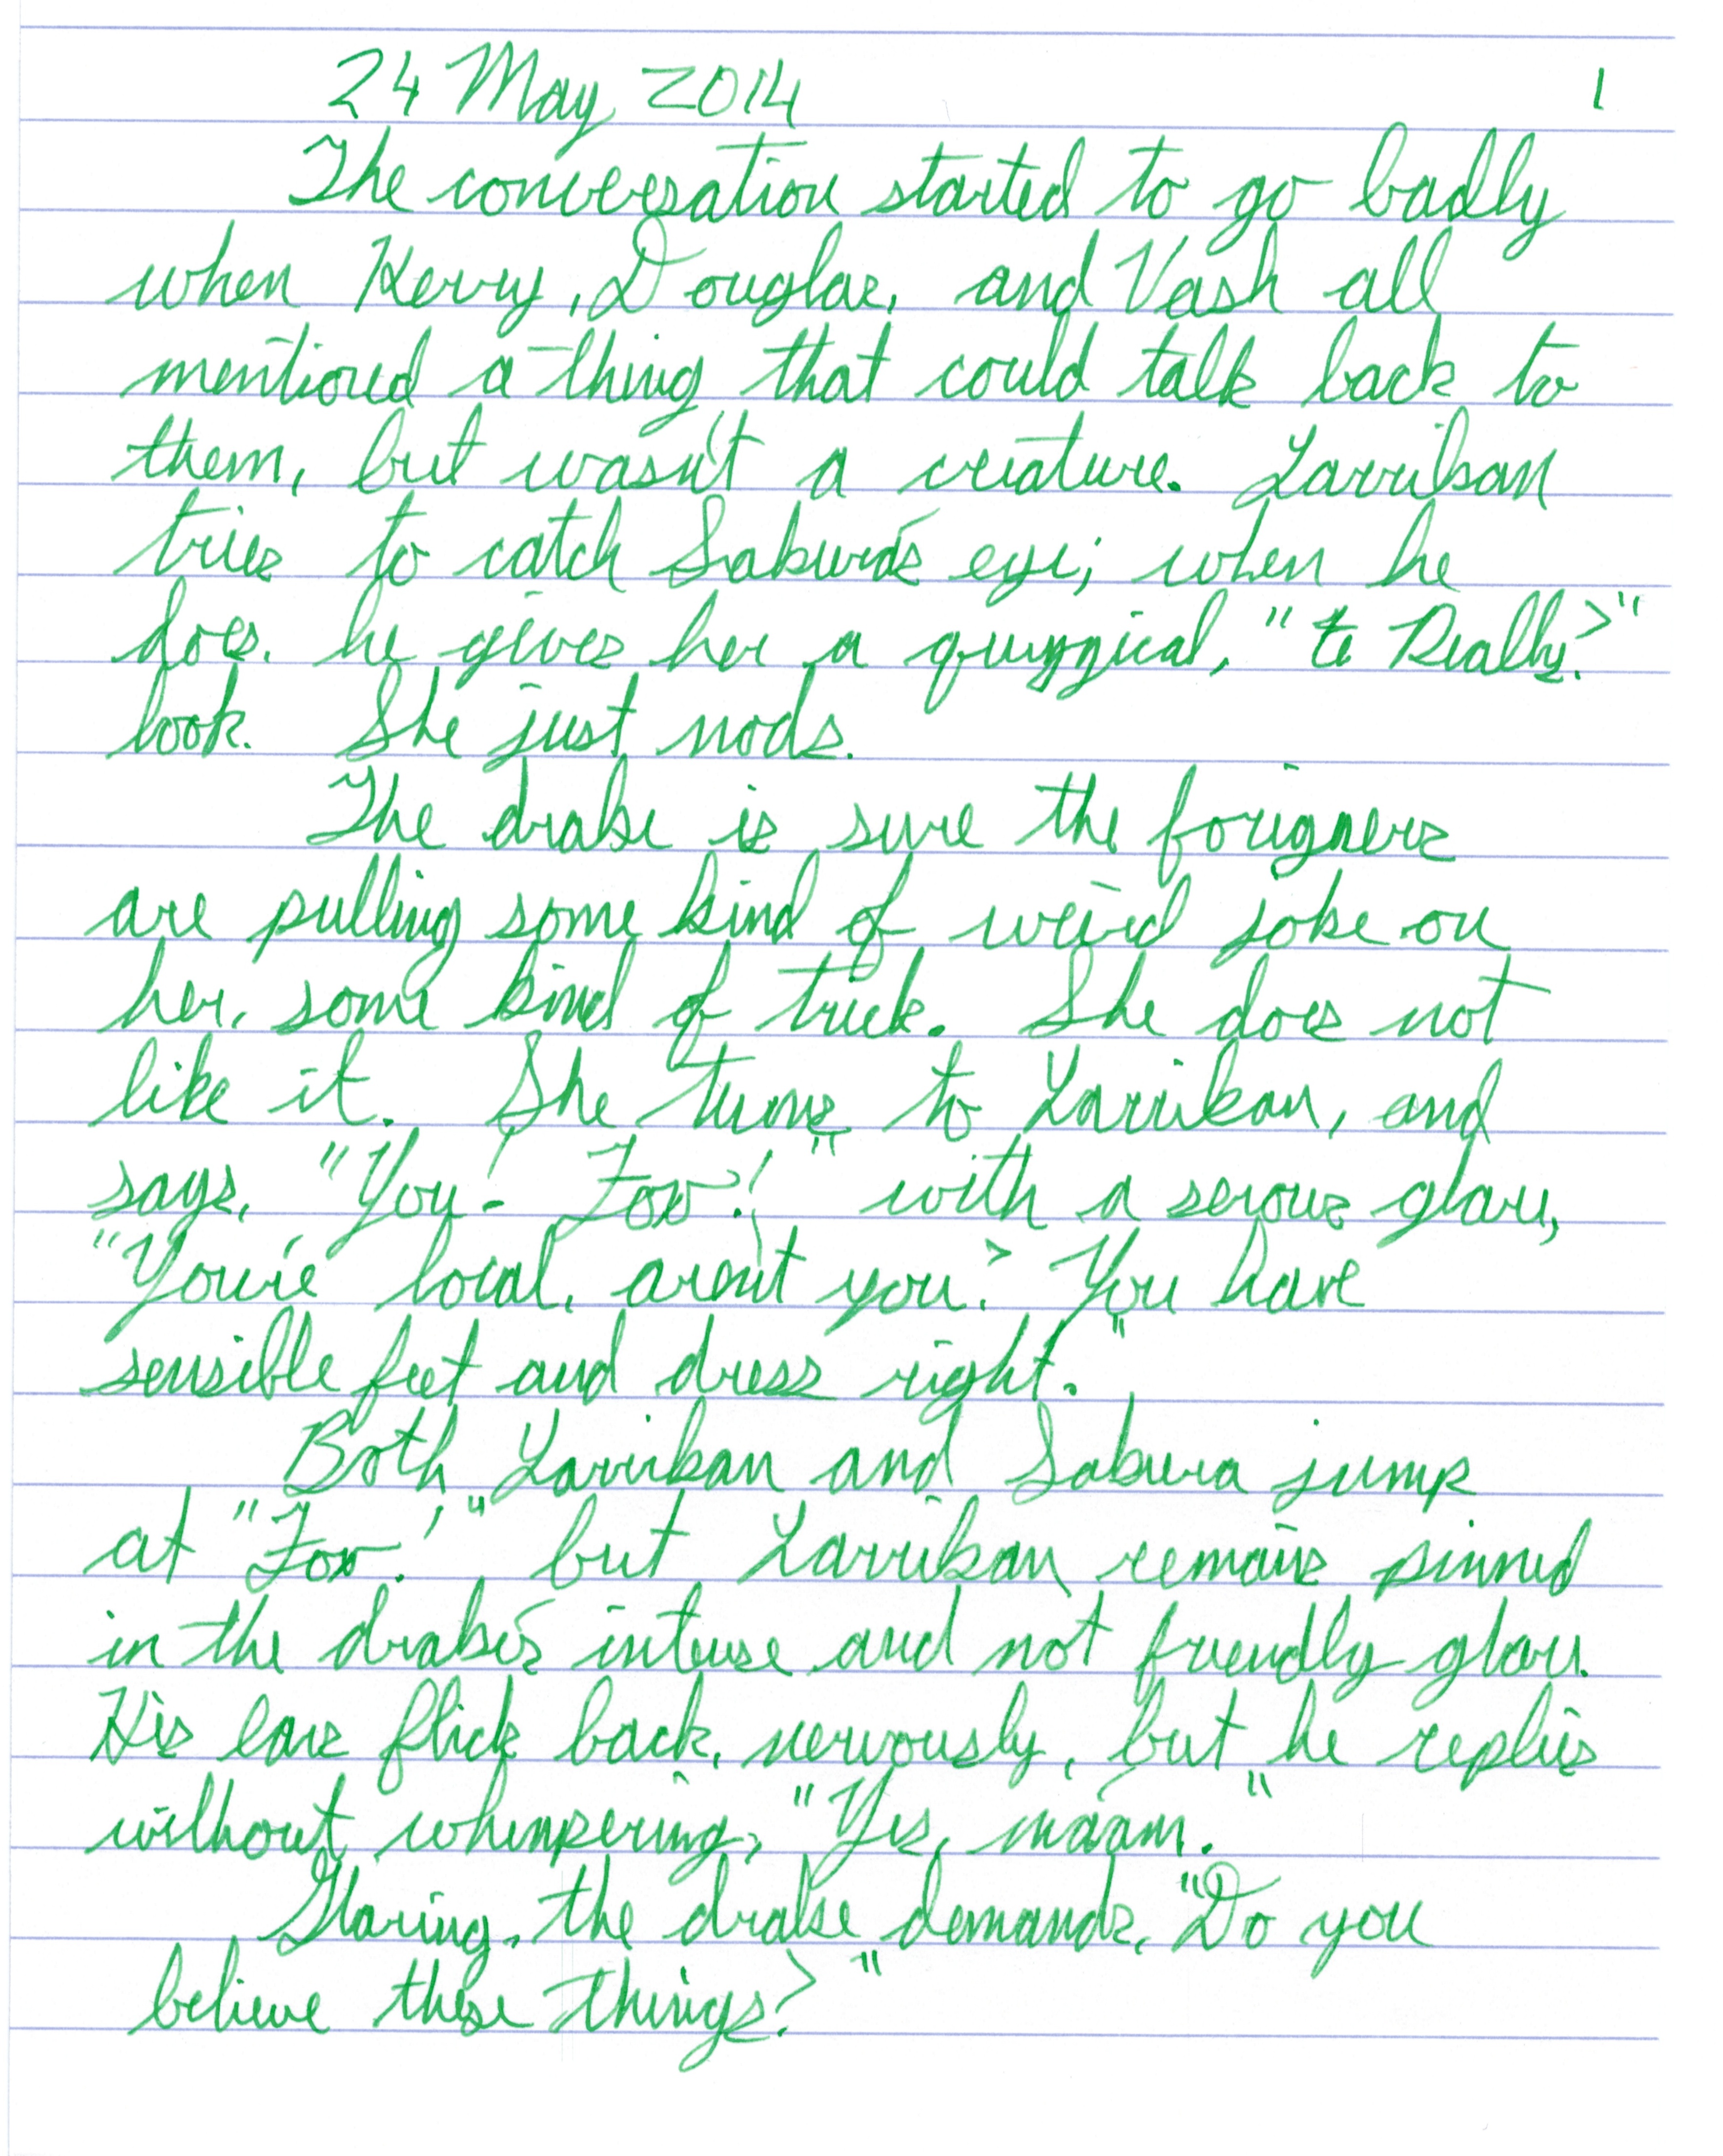 24 May 2014 1
The conversation started to go badly
when Kerry, Douglas, and Vash all
mentioned a thing that could talk back to
them, but wasn't a creature. Larrikan
tries to catch Sakura's eye; when he
does, he gives her a quizzical, "to Really?"
look. She just nods.
The drake is sure the foreigners
are pulling some kind of weird joke on
her, some kind of trick. She does not
like it. She turns to Larrikan, and
says, "You! Fox!" with a serous glare,
"You're local, aren't you? You have
sensible feet and dress right."
Both Larrikan and Sakura jump
at "Fox!" but Larrikan remains pinned
in the drake's intense and not friendly glare.
His ears flick back, nervously, but he replies
without whimpering, "Yes, ma'am."
Glaring, the drake demands, "Do you
believe these things?"